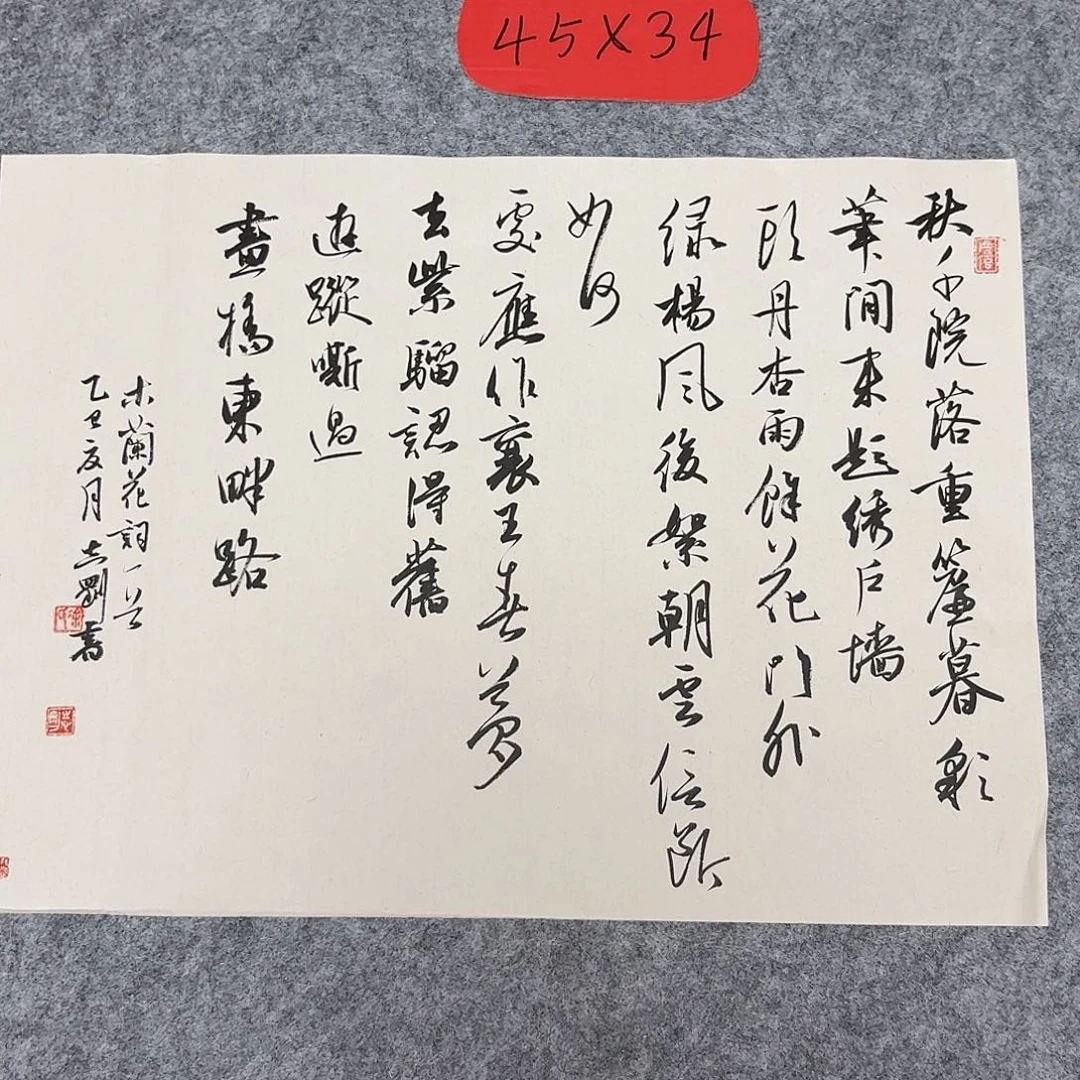 45X34
秋千院落重簾暮彩
筆閒来題綉户墙
頭丹杏雨餘花门外
绿楊風後絮朝雲信断
如何
處應作襄王春夢
去紫騮認得舊
遊蹤嘶過
畫橋東畔路
木蘭花詞一首
乙巳夏月志剛書